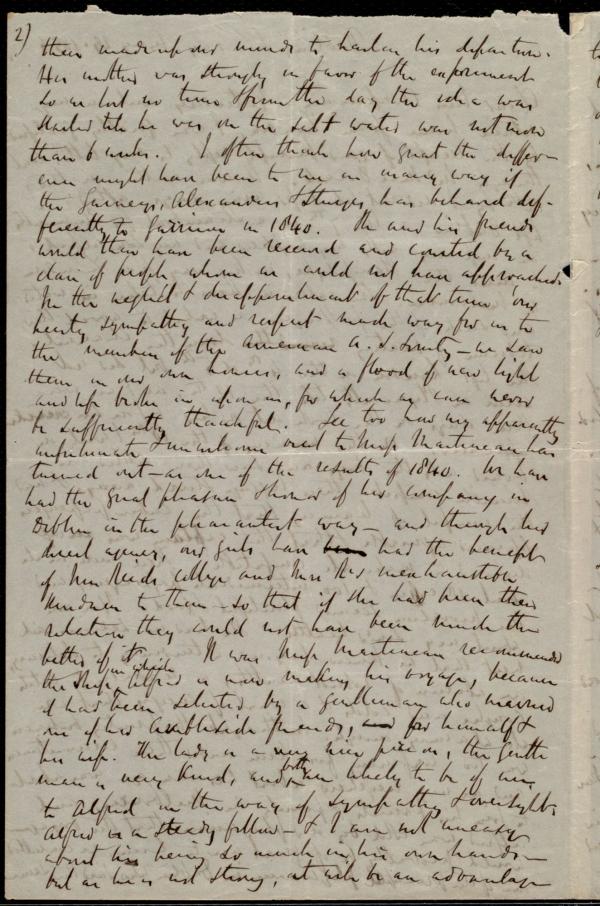 2)
then made up our minds to hasten his departure.
His mother was strongly in favor of the experiment
so we lost no time & from the day the idea was
started till he was on the salt water was not more
than 6 weeks. I often think how great the differ-
ence might have been to me in many ways if
the Gurneys, Alexanders & Sturges has behaved dif-
ferently to Garrison in 1840. He and his friends
would then have been received and courted by a
class of people whom we could not have approached.
In the neglect & disappointment of that time our
hearty sympathy and respect made way for us to
the members of the American A. S. Society — we saw
them in our own homes, and a flood of new light
and life broke in upon us, for which we can never
be sufficiently thankful. See too how my apparently
unfortunate & unwelcome visit to Miss Martineau has
turned out — as one of the results of 1840. We have
had the great pleasure & honor of her company in
Dublin in the pleasantest way — and through her
direct agency, our girls have had the benefit
of Mrs Reids college and Mrs Rs inexhaustible
kindness to them — so that if she had been their
relation they could not have been much the
better of it. It was Miss Martineau recommended
the ship in which Alfred is now making his voyage, because
it had been selected by a gentleman also married
one of her Ambleside friends, for himself &
his wife. The lady is a very nice person, the gentle
man is very kind, and both are likely to be of use
to Alfred in the way of sympathy & oversight.
Alfred is a steady fellow — & I am not uneasy
about his being so much in his own hands —
but as he is not strong, it will be an advantage